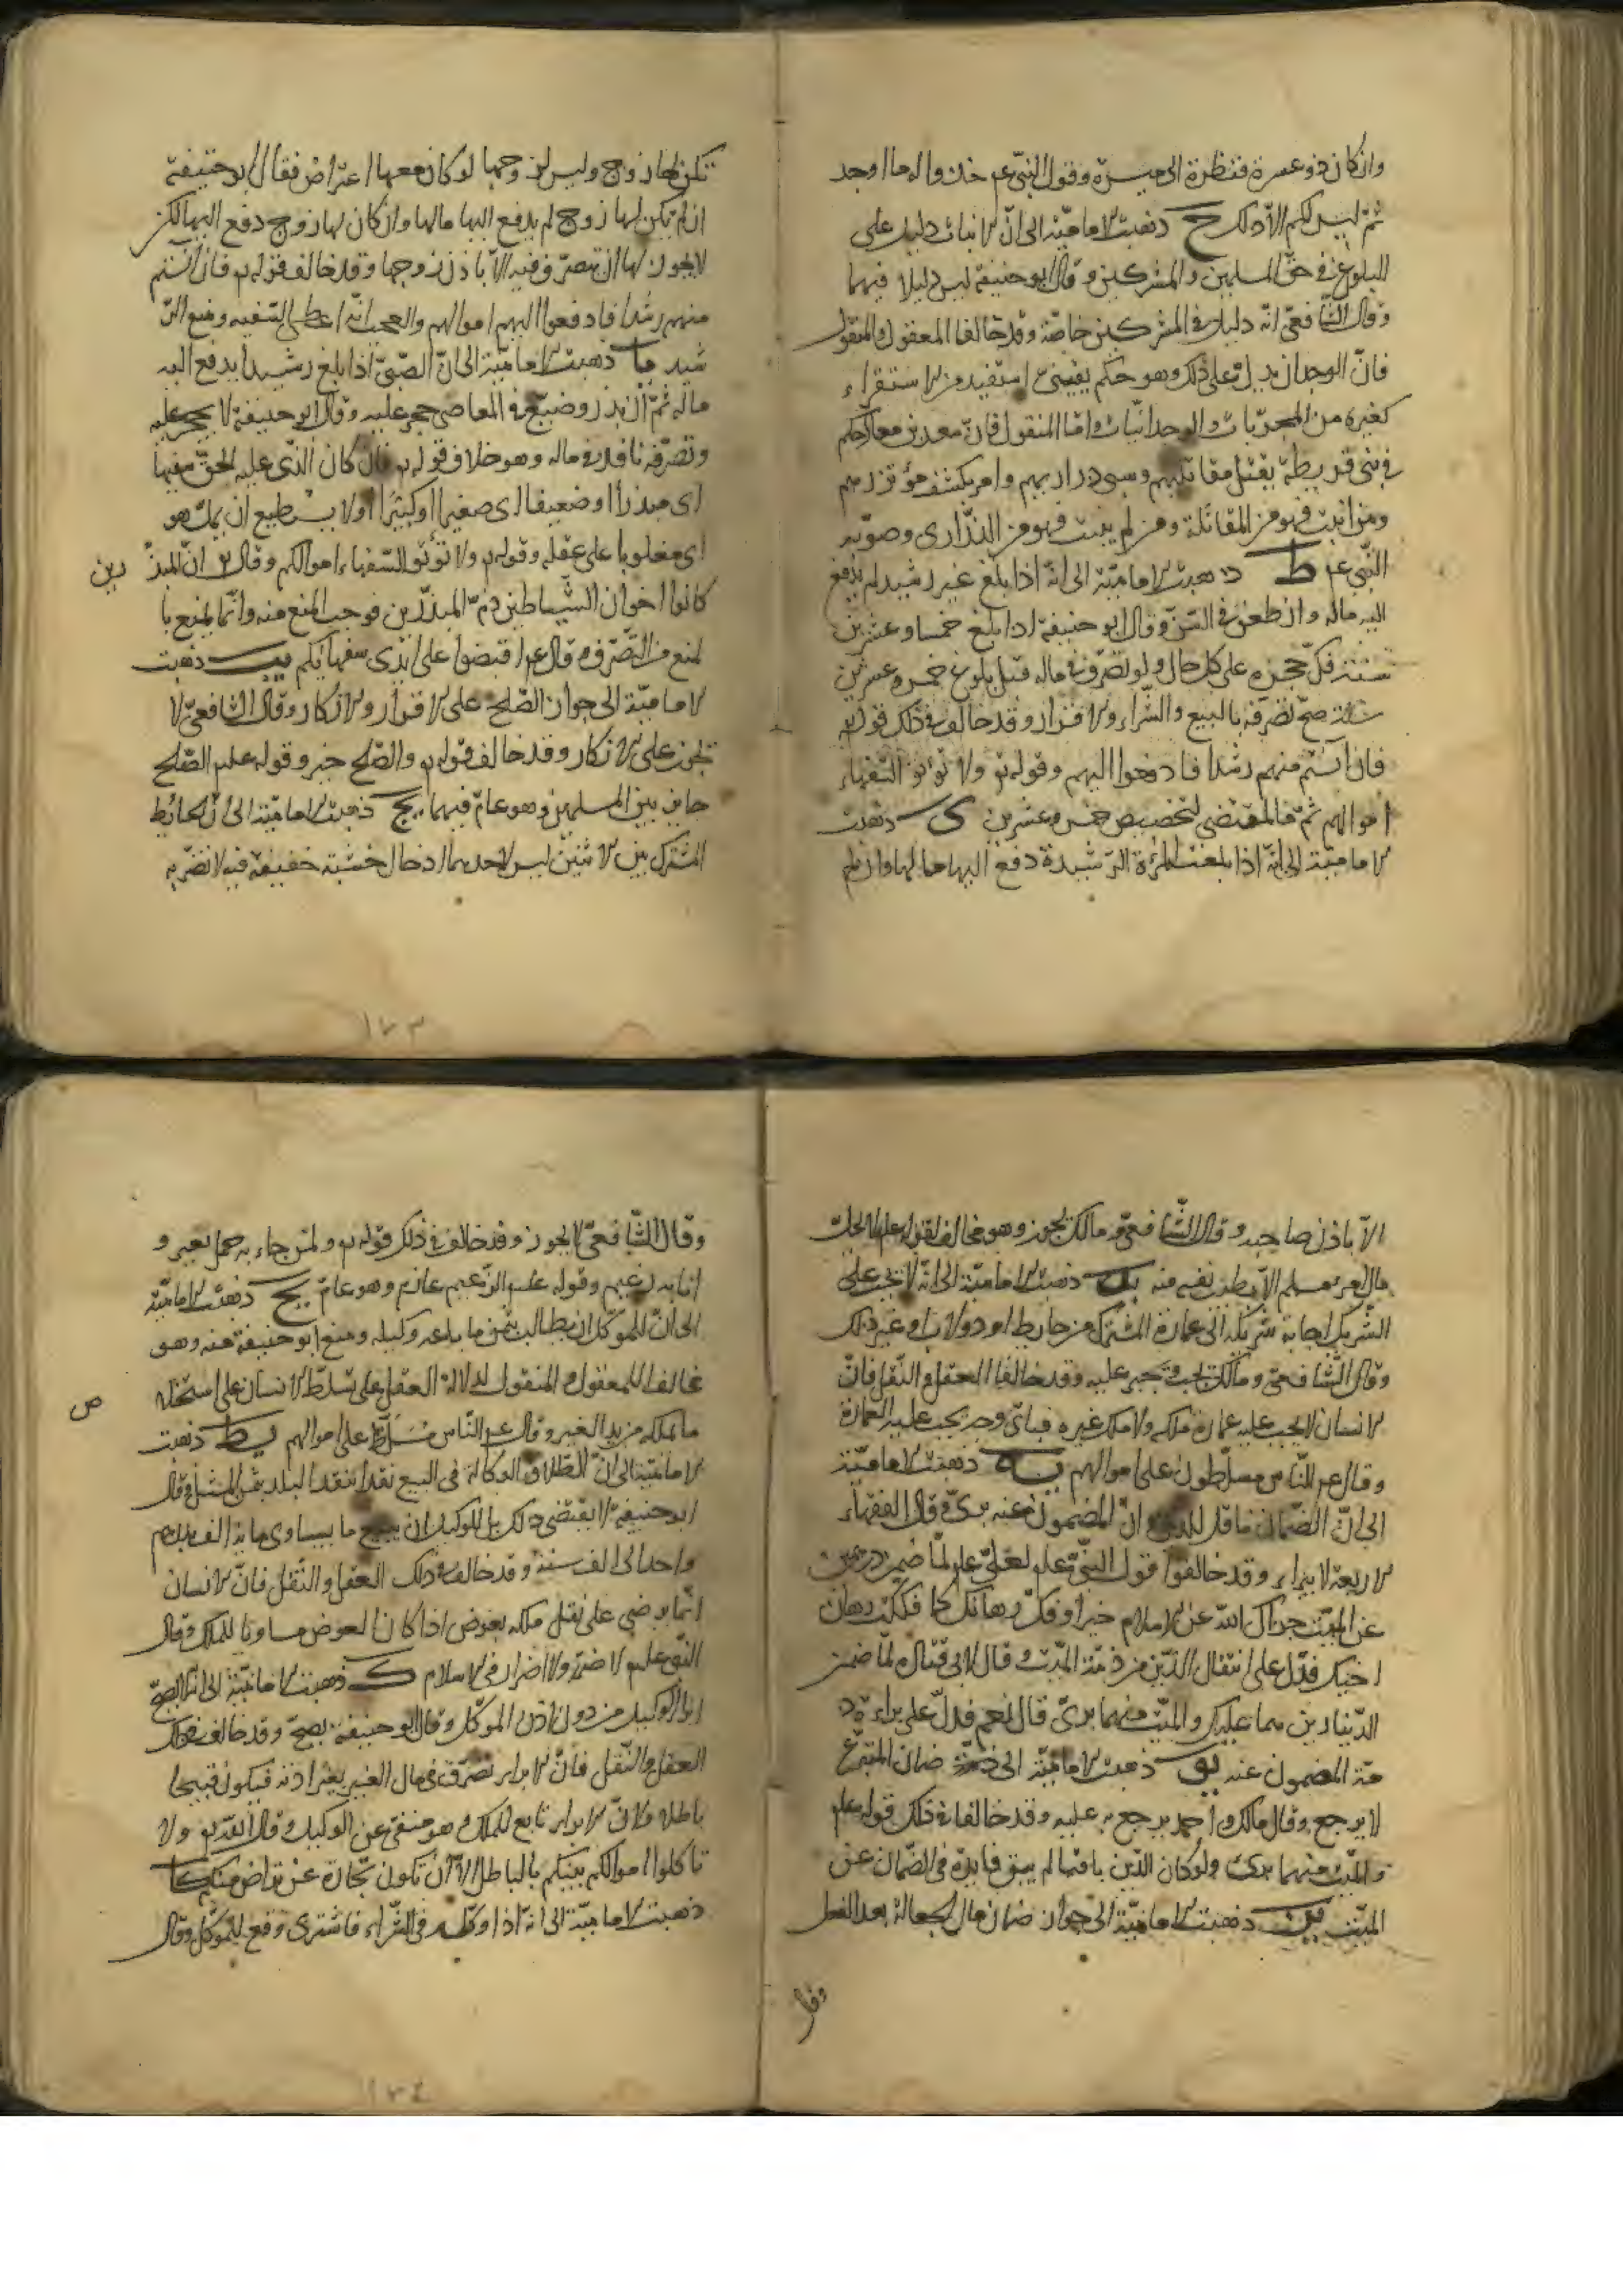 وان كان ذو عسرة فنظرة الى ميسرة وقول النبى عم خذوا له ما وجد
ثم ليس لكم الا ذلك ح ذهبت الامامية الى ان الانبات دليل على
البلوغ فى حق المسلمين والمشركين و قال ابو حنيفة ليس دليلا فيهما
وقال الشافعى انه دليل فى المشركين خاصة وقد خالفا المعقول والمنقول
فان الوجدان يدل على ذلك وهو حكم يقينى استفيد من الاستقراء
كغيره من المجربات والوجدانيات واما المنقول فان سعد بن معاذ حكم
فى بنى قريظة بقتل مقاتليهم وسبى ذراريهم وامر بكشف مؤتزرهم
ومن انبت فهو من المقاتلة ومن لم ينبت فهو من الذرارى وصوبه
النبى عم ط ذهبت الامامية الى انه اذا بلغ غير رشيد لم يدفع
اليه ماله وان طعن فى السن وقال ابو حنيفة اذا بلغ خمسا وعشرين
سنة فك حجره على كل حال ولو تصرف فى ماله قبل بلوغ خمس وعشرين
سنة صح تصرفه بالبيع والشراء والاقرار وقد خالف فى ذلك قوله تع
فان انستم منهم رشدا فادفعوا اليهم وقوله تع ولا تؤتوا السفهاء
اموالهم ثم فما المقتضى لتخصيص خمس وعشرين ى ذهبت
الامامية الى انه اذا بلغت المرءة الرشيدة دفع اليها مالها وان لم
تكن لها زوج وليس لزوجها لو كان معها اعتراض فقال ابو حنيفة
ان لم يكن لها زوج لم يدفع اليها مالها وان كان لها زوج دفع اليها لكن
لا يجوز لها ان تتصرف فيه الا باذن زوجها وقد خالف قوله تع فان انستم
منهم رشدا فادفعوا اليهم اموالهم والعجب انه اعطى السفيه ومنع الر
شيد يا ذهبت الامامية الى ان الصبى اذا بلغ رشيدا يدفع اليه
ماله ثم ان بذر وضيع فى المعاصى حجر عليه وقال ابو حنيفة لا يحجر عليه
وتصرفه نافذ فى ماله وهو خلاف قوله تع فان كان الذى عليه الحق سفيها
اى مبذرا او ضعيفا اى صغيرا او كبيرا او لا يستطيع ان يمل هو
اى مغلوبا على عقله وقوله تع ولا تؤتوا السفهاء اموالكم وقال تع ان المبذ رين
كانوا اخوان الشياطين ذم المبذرين فوجب المنع منه وانما يمنع با
لمنع من التصرف وقال عم اقبضوا على ايدى سفهائكم يب ذهبت
الامامية الى جواز الصلح على الاقرار والانكار وقال الشافعى لا
تجوز على الانكار وقد خالف قوله تع والصلح خير وقوله عليه الصلح
جايز بين المسلمين وهو عام فيهما يج ذهبت الامامية الى ان الحايط
المشترك بين الاثنين ليس لاحدهما ادخال خشبة خفيفة فيه لا تضر به
الا باذن صاحبه وقال الشافعى ومالك يجوز وهو مخالف لقوله عليه لا يحل
مال امرء مسلم الا بطيب نفس منه يد ذهبت الامامية الى انه لا تجب على
الشريك اجابة شريكه الى عمارة المشترك من حايط او دولاب او غير ذلك
وقال الشافعى ومالك تجب وتجبر عليه وقد خالفا العقل والنقل فان
الانسان لا يجب عليه عمارة ملكه ولا ملك غيره فباى وجه يجب عليه العمارة
وقال عم الناس مسلطون على اموالهم يه ذهبت الامامية
الى ان الضمان ناقل للدين وان المضمون عنه برئ وقال الفقهاء
الاربعة لا يبراء وقد خالفوا قول النبى عليه لعلى عليه لما ضمن درهمين
عن الميت جزاك الله عن الاسلام خيرا وفك رهانك كما فككت رهان
اخيك فدل على انتقال الدين من ذمة الميت وقال لابى قتاده لما ضمن
الدينارين هما عليك والميت منهما برئ قال نعم فدل على براءة ذ
مة المضمون عنه يو ذهبت الامامية الى ضمان المتبرع
لا يرجع وقال مالك واحمد يرجع به عليه وقد خالفا فى ذلك قوله عليه
والميت منهما برئ ولو كان الدين باقيا لم يبق فايدة فى الضمان عن
الميت يز ذهبت الامامية الى جواز ضمان مال الجعالة بعد الفعل
وقال
وقال الشافعى لا يجوز وقد خالف فى ذلك قوله تع ولمن جاء به حمل بعير و
انا به زعيم وقوله عليه الزعيم غارم وهو عام يح ذهبت الامامية
الى ان للموكل ان يطالب بثمن ما باعه وكيله ومنع ابو حنيفة منه وهو
مخالف للمعقول والمنقول لدلالة العقل على تسلط الانسان على استخلا ص
ما يملكه من يد الغير وقال عم الناس مسلط على اموالهم يط ذهبت
الامامية الى ان اطلاق الوكالة فى البيع نقدا بنقد البلد بثمن المثل وقال
ابو حنيفة لا يقتضى ذلك بل للوكيل ان يبيع ما يساوى ماية الف بدرهم
واحد الى الف سنة وقد خالف فى ذلك العقل والنقل فان الانسان
انما يرضى على نقل ملكه بعوض اذا كان العوض مساويا للملك وقال
النبى عليه لا ضرر ولا اضرار فى الاسلام ك ذهبت الامامية الى انه لا يصح
ابراء الوكيل من دون اذن الموكل وقال ابو حنيفة يصح وقد خالف فى ذلك
العقل والنقل فان الابراء تصرف فى مال الغير بغير اذنه فيكون قبيحا
باطلا ولان الابراء تابع للملك وهو منفى عن الوكيل وقال الله تع ولا
تاكلوا اموالكم بينكم بالباطل الا ان تكون تجارة عن تراض منكم كا
ذهبت الامامية الى انه اذا وكله فى الشراء فاشترى وقع للموكل وقال